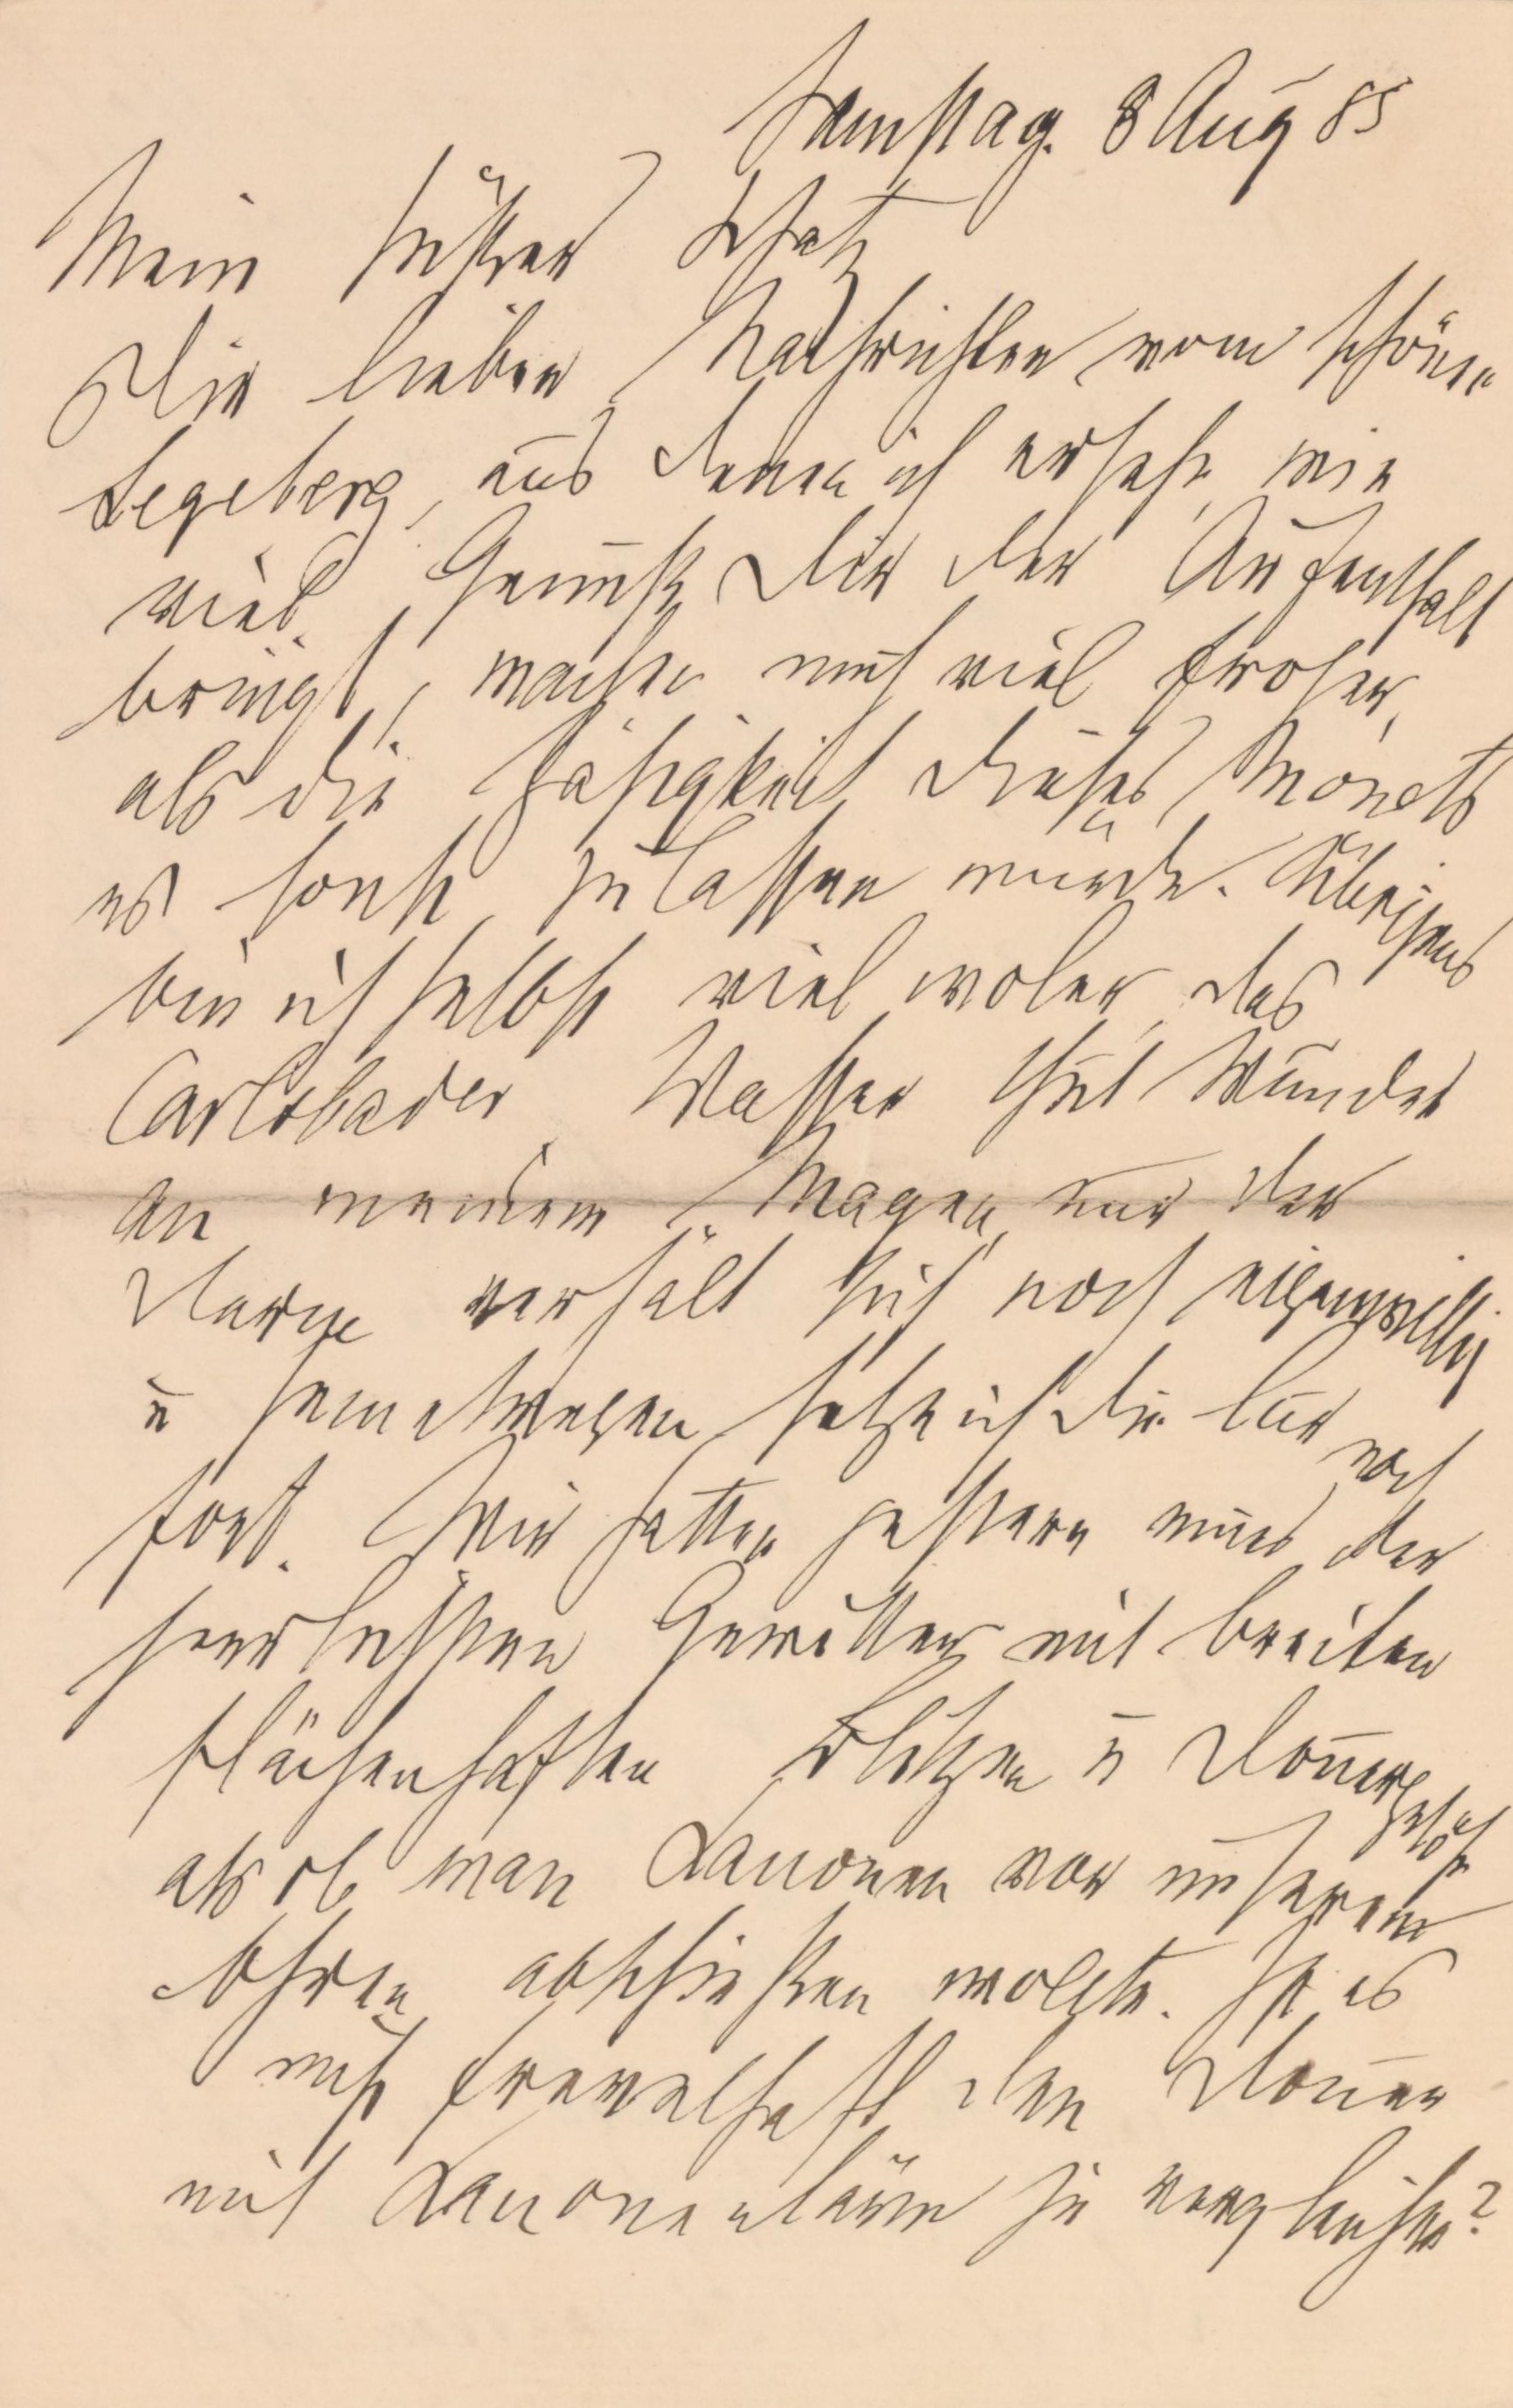 Samstag. 8 Aug 85
Mein süßer Schatz
Die lieben Nachrichten vom schönen
Segeberg, aus denen ich ersehe, wie
viel Genuß Dir der Aufenthalt
bringt, machen mich viel froher,
als die Hässigkeit dieses Monats
es sonst zulassen würde. Übrigens
bin ich selbst viel woler, das
Carlsbader Wasser thut Wunder
an meinem Magen, nur der
Darm verhält sich noch eigenwillig
u seinetwegen setze ich die Cur noch
fort. Wir hatten gestern eines der
herrlichsten Gewitter mit breiten
flächenhaften Blitzen u Donnergetöse
als ob man Kanonen vor unseren
Ohren abschießen wollte. Ist es
nicht frevelhaft den Donner
mit Kanonenlärm zu vergleichen?